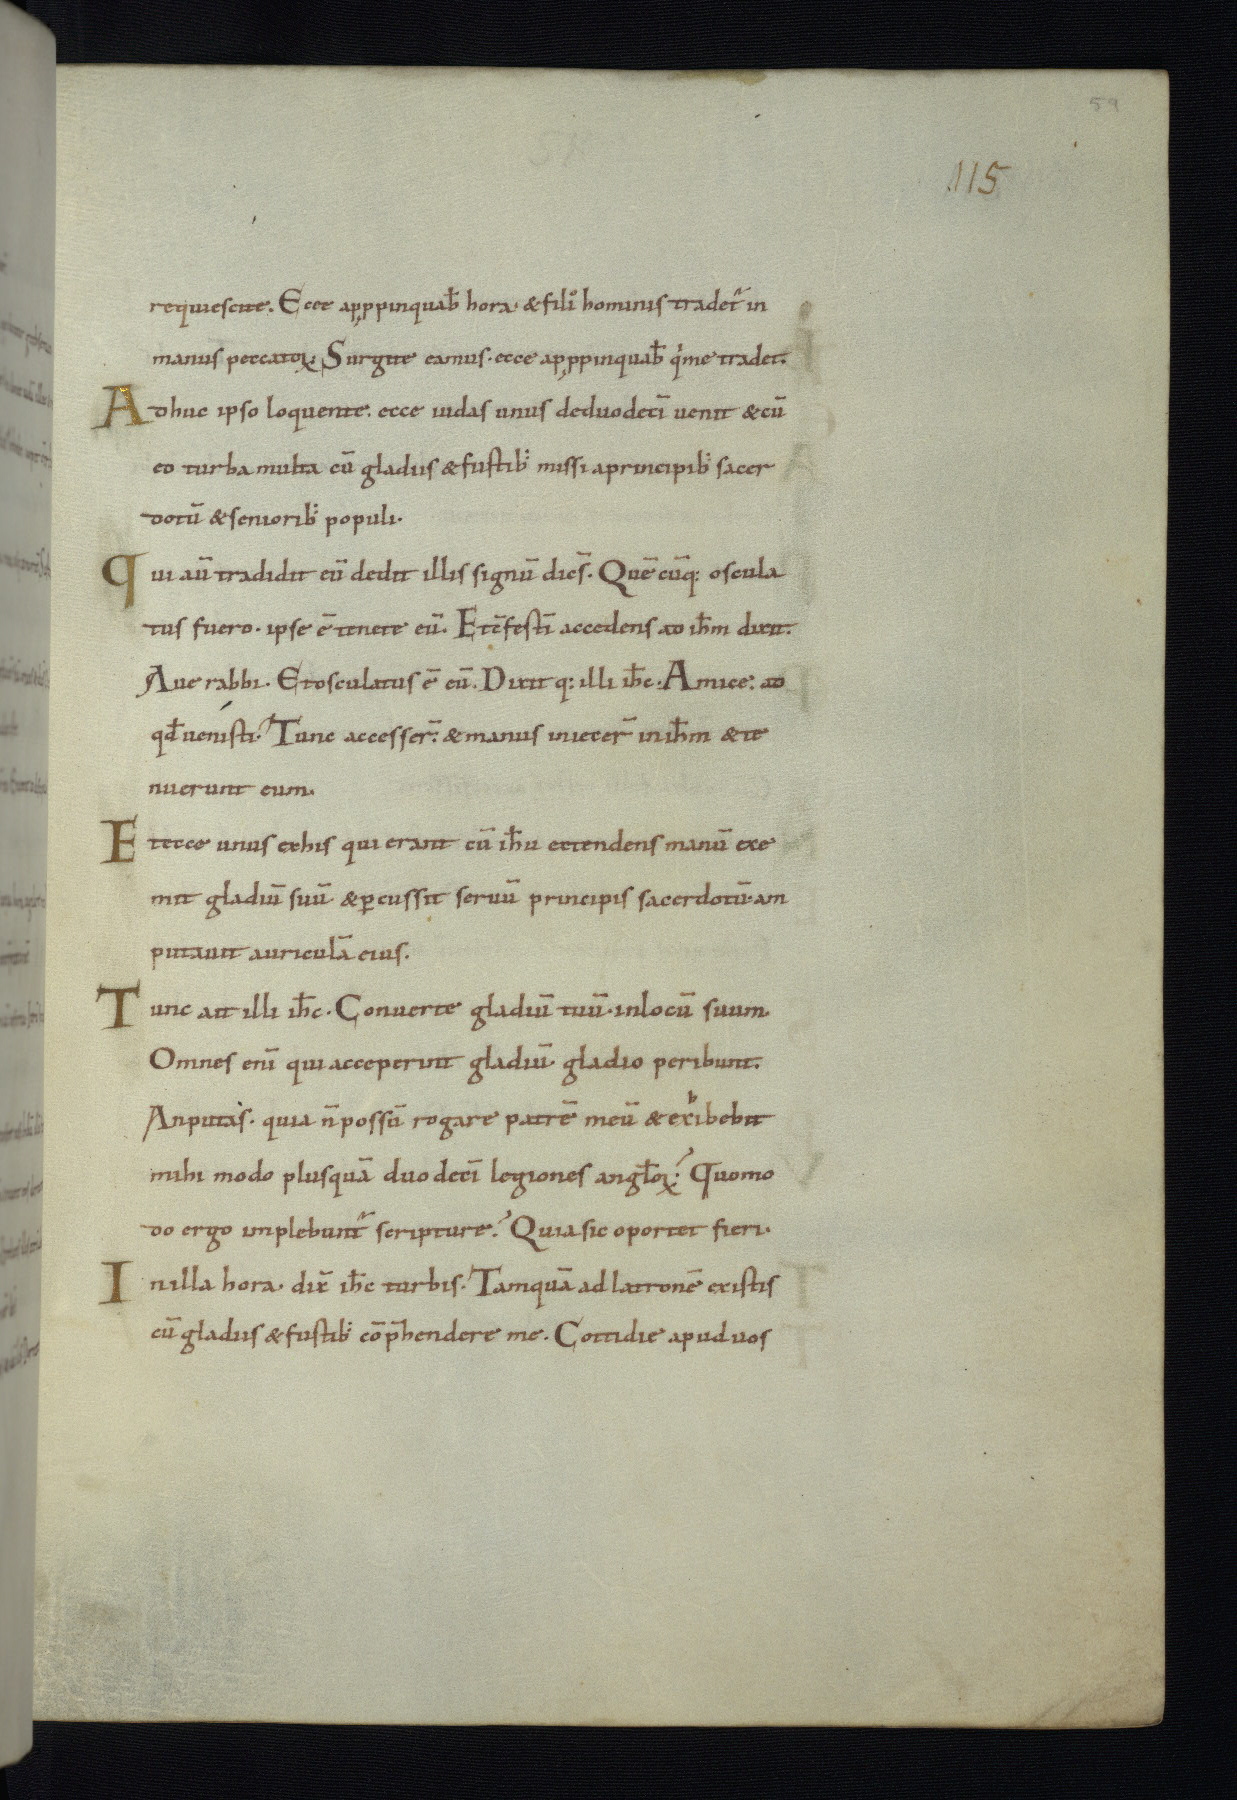 59
115
requiescite. Ecce appropinquab̄ hora· & fili᷒ hominis tradet᷑ in
manus peccatoꝝ. Surgite eamus· ecce appropinquab̄ q̇ me tradet.
Adhuc ipso loquente. ecce iudas unus de duodeci᷒̄ uenit & cū
eo turba multa cū gladiis & fustib; missi a principib; sacer
dotū & seniorib; populi·
Qui aū tradidit eū dedit illis signū dicēs. Quē cūq; oscula
tus fuero· ipse ē tenete eū. Et cōfestī accedens ad ih̄m dixit.
Aue rabbi. Et osculatus ē eū. Dixit q; illi ih̄c. Amice: ad
qd̄ uenisti? Tunc accesser̄ & manus iniecer̄ in ih̄m & te
nuerunt eum.
Et ecce unus ex his qui erant cū ih̄u extendens manū exe
mit gladiū suū & ꝑcussit seruū principis sacerdotū· am
putauit auriculā eius.
Tunc ait illi ih̄c. Conuerte gladiū tuū· in locū suum.
Omnes eni̅ qui acceperint gladiū· gladio peribunt.
An putas· quia n̄ possū rogare patrē meū & exhibebit
mihi modo plusquā duodecī legiones angl̄oꝝ? Quomo
do ergo implebunt᷑ scripture? Quia sic oportet fieri.
In illa hora· dix̄ ih̄c turbis. Tamquā ad latronē existis
cū gladiis & fustib; cōp̄hendere me. Cottidie apud uos